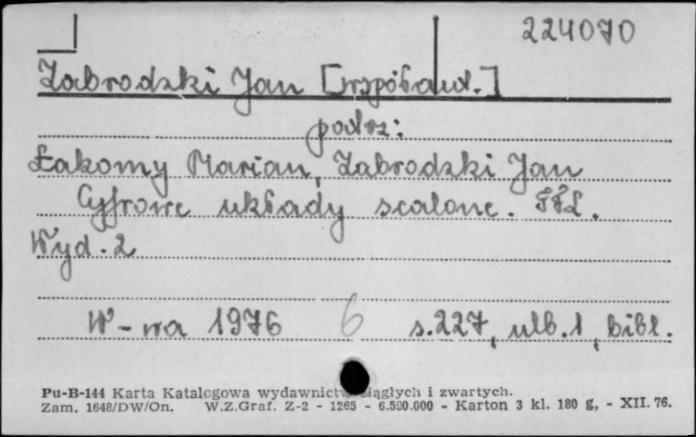 224070
Zabrodzki Jan [współaut.]
patrz:
Łakomy Marian, Zabrodzki Jan
Cyfrowe układy scalone. TTL.
Wyd. 2
W-wa 1976 6 s.227, ulb.1, bibl.
Pu-B-144 Karta Katalogowa wydawnictw ciągłych i zwartych.
Zam. 1648/DW/On. W.Z.Graf. Z-2 - 1265 - 6.500.000 - Karton 3 kl. 180 g, - XII. 76.